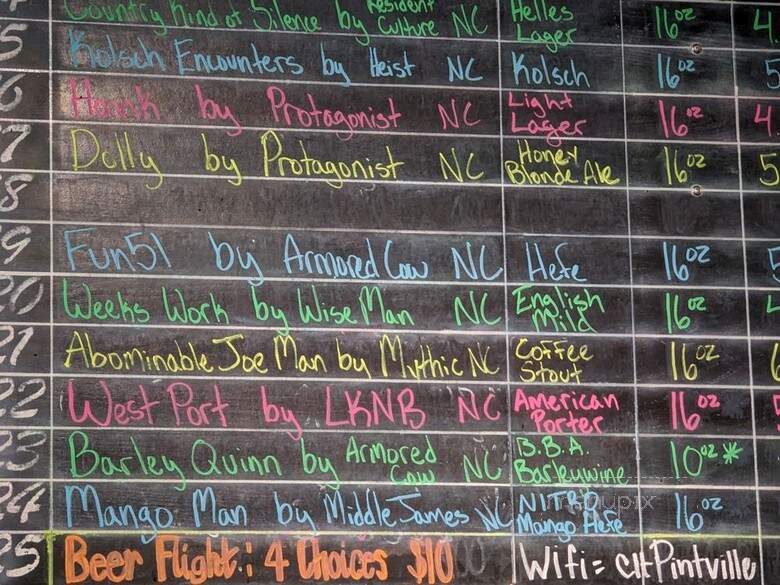 4 Country Kind of Silence by Resident Culture NC Helles Lager 16oz 4.
5 Kolsch Encounters by Heist NC Kolsch 16oz 5
6 Hawnk by Protagonist NC Light Lager 16oz 4
7 Dolly by Protagonist NC Honey Blonde Ale 16oz 5
8
9 Fun51 by Armored Cow NC Hefe 16oz 5
20 Weeks Work by Wise Man NC English Mild 16oz 4
21 Abominable Joe Man by Mythic NC Coffee Stout 16oz 6
22 West Port by LKNB NC American Porter 16oz 5
23 Barley Quinn by Armored Cow NC B.B.A. Barleywine 10oz *
24 Mango Man by Middle James NC NITRO Mango Hefe 16oz
25 Beer Flight: 4 Choices $10 Wifi = cltPintville